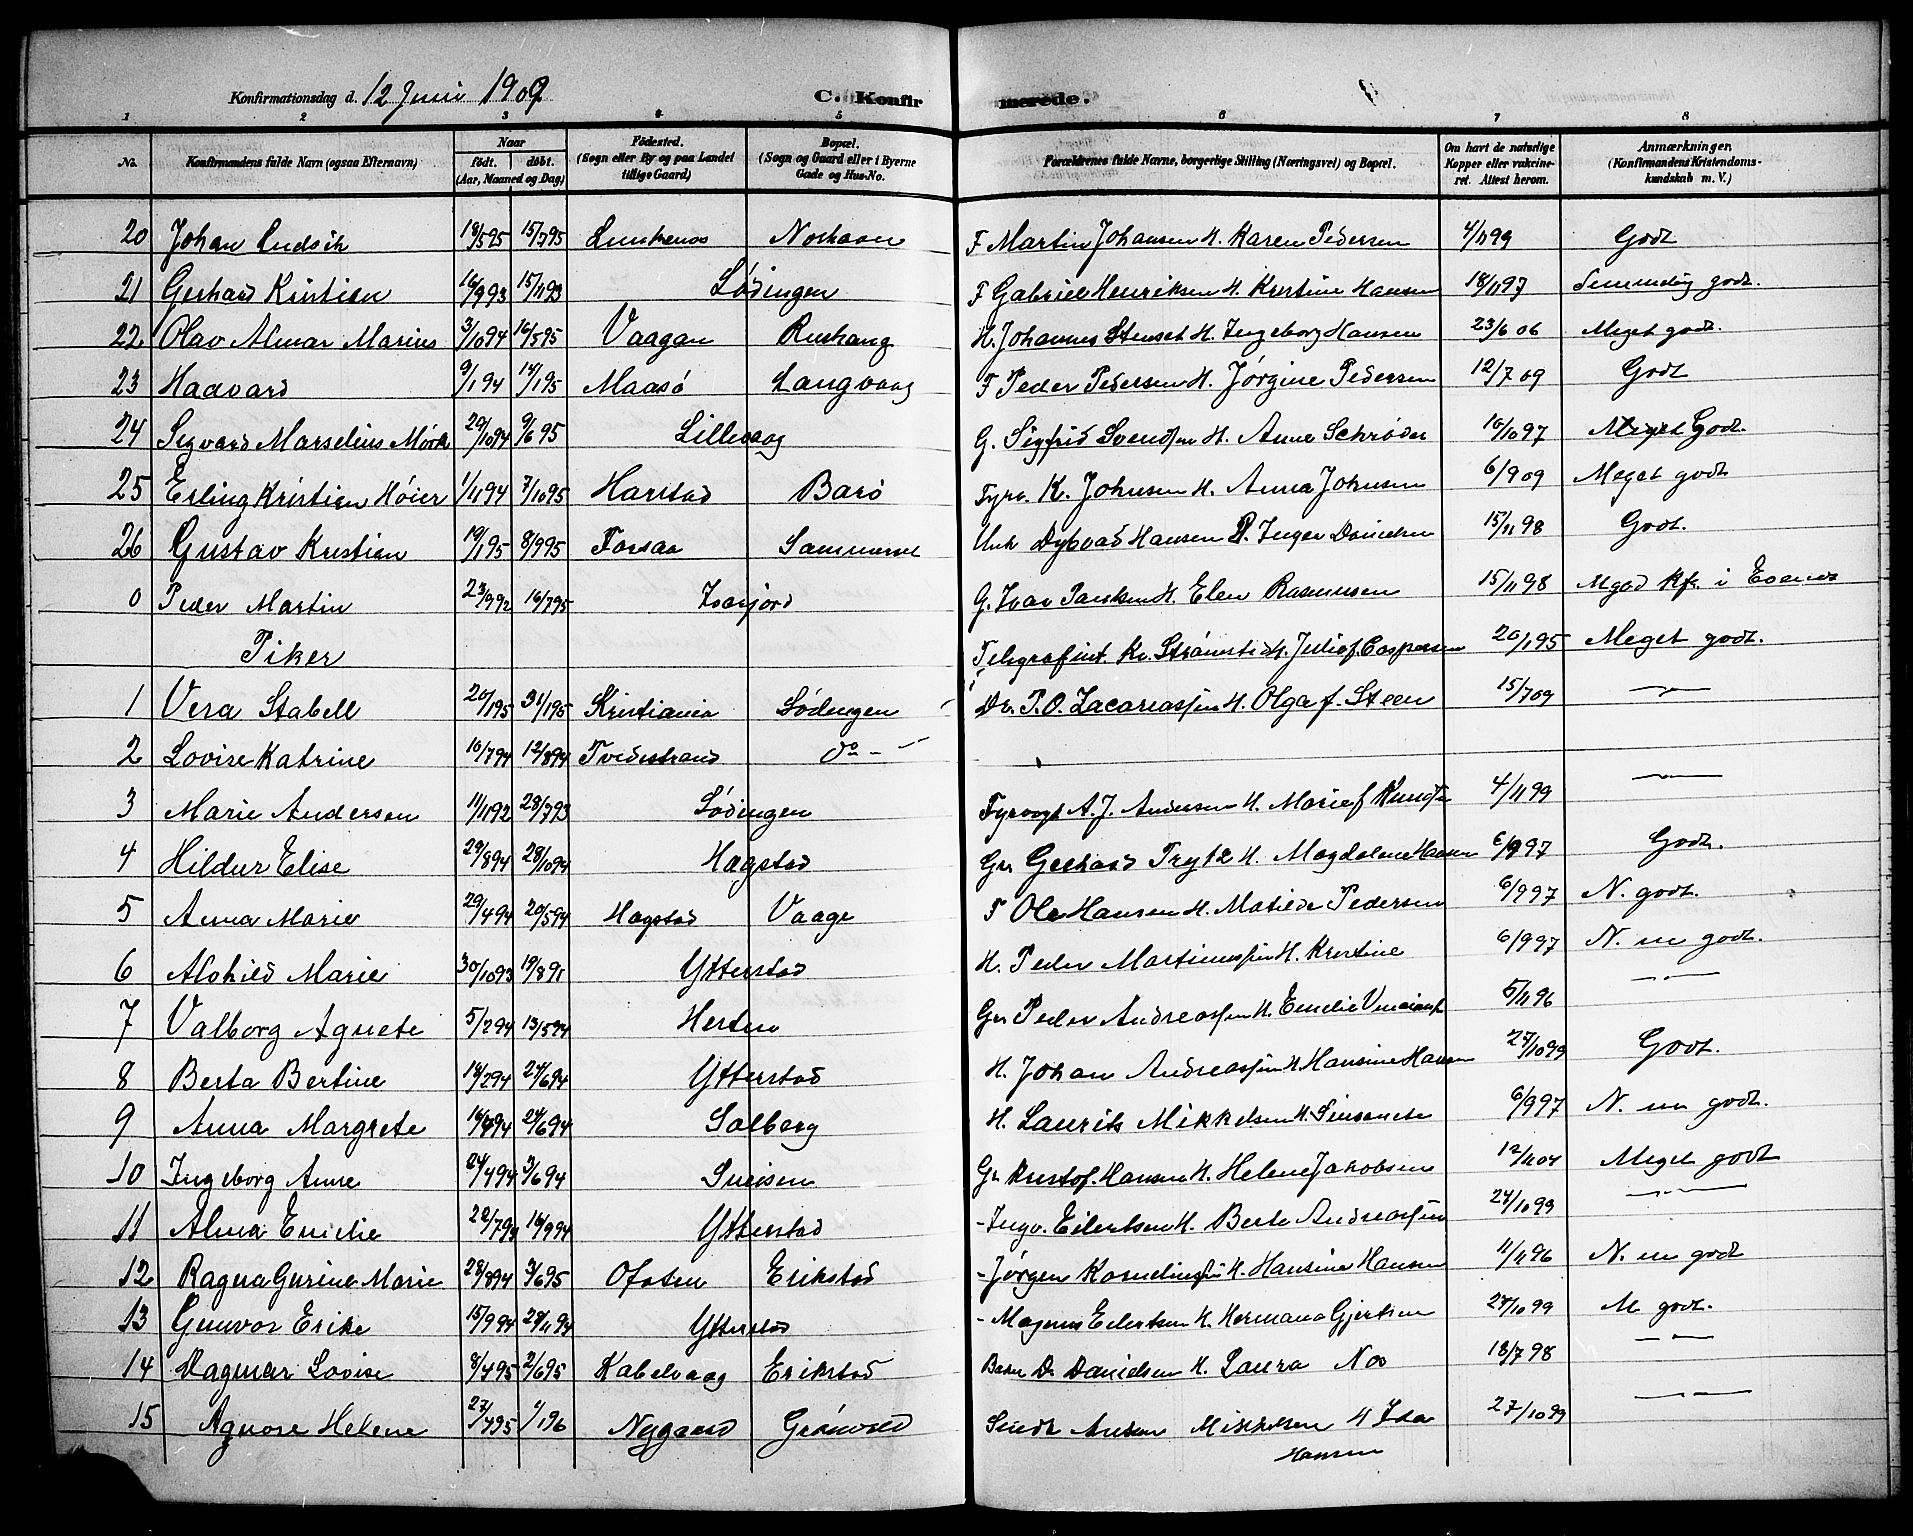 Konfirmationsdag d. 12 Juni 1909 C. Konfirmerede.
1 2 3 4 5 6 7 8
No. Konfirmandens fulde Navn (ogsaa Efternavn) Naar født. døbt. (Aar, Maaned og Dag) Fødested. (Sogn eller By og paa Landet tillige Gaard) Bopæl. (Sogn og Gaard eller i Byerne Gade og Hus-No. Forældrenes fulde Navne, borgerlige Stilling (Næringsvei) og Bopæl. Om havt de naturlige Kopper eller vakcineret. Attest herom. Anmærkninger. (Konfirmandens Kristendomskundskab m. V.)
20 Johan Ludvik 18/5 95 15/7 95 F Martin Johansen H. Karen Pedersen 4/11 99 Godt
21 Gerhard Kristian 16/9 93 15/11 93 Lødingen F Gabriel Henriksen H. Kristine Hansen 18/11 97 Temmelig godt.
22 Olav Almar Marius 3/10 94 16/5 95 Vaagan H. Johannes Stenset H. Ingeborg Hansen 23/6 06 Meget godt.
23 Haavard 9/1 94 14/1 95 Maasø Langvaag F Peder Pedersen H. Jørgine Pedersen 12/7 09 Godt
24 Segvard Marselius Mørk 29/10 94 9/6 95 Lillevaag G. Sigfrid Svendsen H. Anne Schrøder 10/10 97 Godt.
25 Erling Kristian Høier 1/11 94 7/10 95 Harstad Barø Fyrv. K. Johnsen H. Anna Johnsen 6/9 09 Meget godt
26 Gustav Kristian 19/1 95 8/9 95 Forsaa Unk Dybvad Hansen P. Inger Danielsen 15/11 98 Godt.
0 Peder Martin 23/9 92 16/7 95 G. Ivar H. Elen Rasmussen 15/11 98 Mgod Kfr. i Evenes
Piker
1 Vera Stabell 20/1 95 31/1 95 Kristiania Lødingen Telegrafint. Kr. H. Julie f. Caspersen 20/1 95 Meget godt.
2 Lovise Katrine 10/7 94 12/8 94 Tvedestrand do Dr. P. O. Zacariassen H. Olga f. Steen 15/7 09 —"—
3 Marie Andersen 11/11 92 28/7 93 Lødingen Fyrvogt A. J. Andersen H. Marie f. 4/11 99 —"—
4 Hildur Elise 29/8 94 28/10 94 Hagstad Gr. Gerhard Trytz H. Magdalene Hansen 6/9 97 Godt.
5 Anna Marie 29/4 94 20/5 94 Hagstad Vaage F Ole Hansen H. Matilde Pedersen 6/9 97 N. godt.
6 Alvhild Marie 30/10 93 Ytterstad H. Peder Martinussen H. Kristine 6/9 97 N. m godt.
7 Valborg Agnete 5/2 94 13/5 94 Gr Peder Andreassen H. Emelie 5/11 96 —"—
8 Berta Bertine 18/2 94 24/6 94 Ytterstad H. Johan Andreassen H Hansine Hansen 27/10 99 Godt.
9 Anna Margrete 16/4 94 24/6 94 Solberg H. Laurits Mikkelsen H. 6/9 97 N. m godt.
10 Ingeborg Anne 24/4 94 3/6 94 Gr Kristof. Hansen H. Helene Jakobsen 12/11 04 Meget godt
11 Alma Emelie 22/7 94 16/9 94 Ytterstad - Ingv. Eilertsen H. Berte Andreassen 24/10 99 —"—
12 Ragna Gurine Marie 28/8 94 3/6 95 Ofoten Erikstad - Jørgen Korneliussen H. Hansine Hansen 11/11 96 N. m godt
13 Gunvor Erike 15/9 94 29/11 94 Ytterstad - Magnus Eilertsen H. Hermana Gjertsen 27/10 99 M godt.
14 Dagmar Lovise 8/4 95 2/6 95 Kabelvaag Erikstad D. Danielsen H. Laura 18/7 98 —"—
15 Agnore Helene 27/4 95 1/1 96 Nygaard Grønvold Anton Mikkelsen H Ida Hansen 27/10 99 —"—